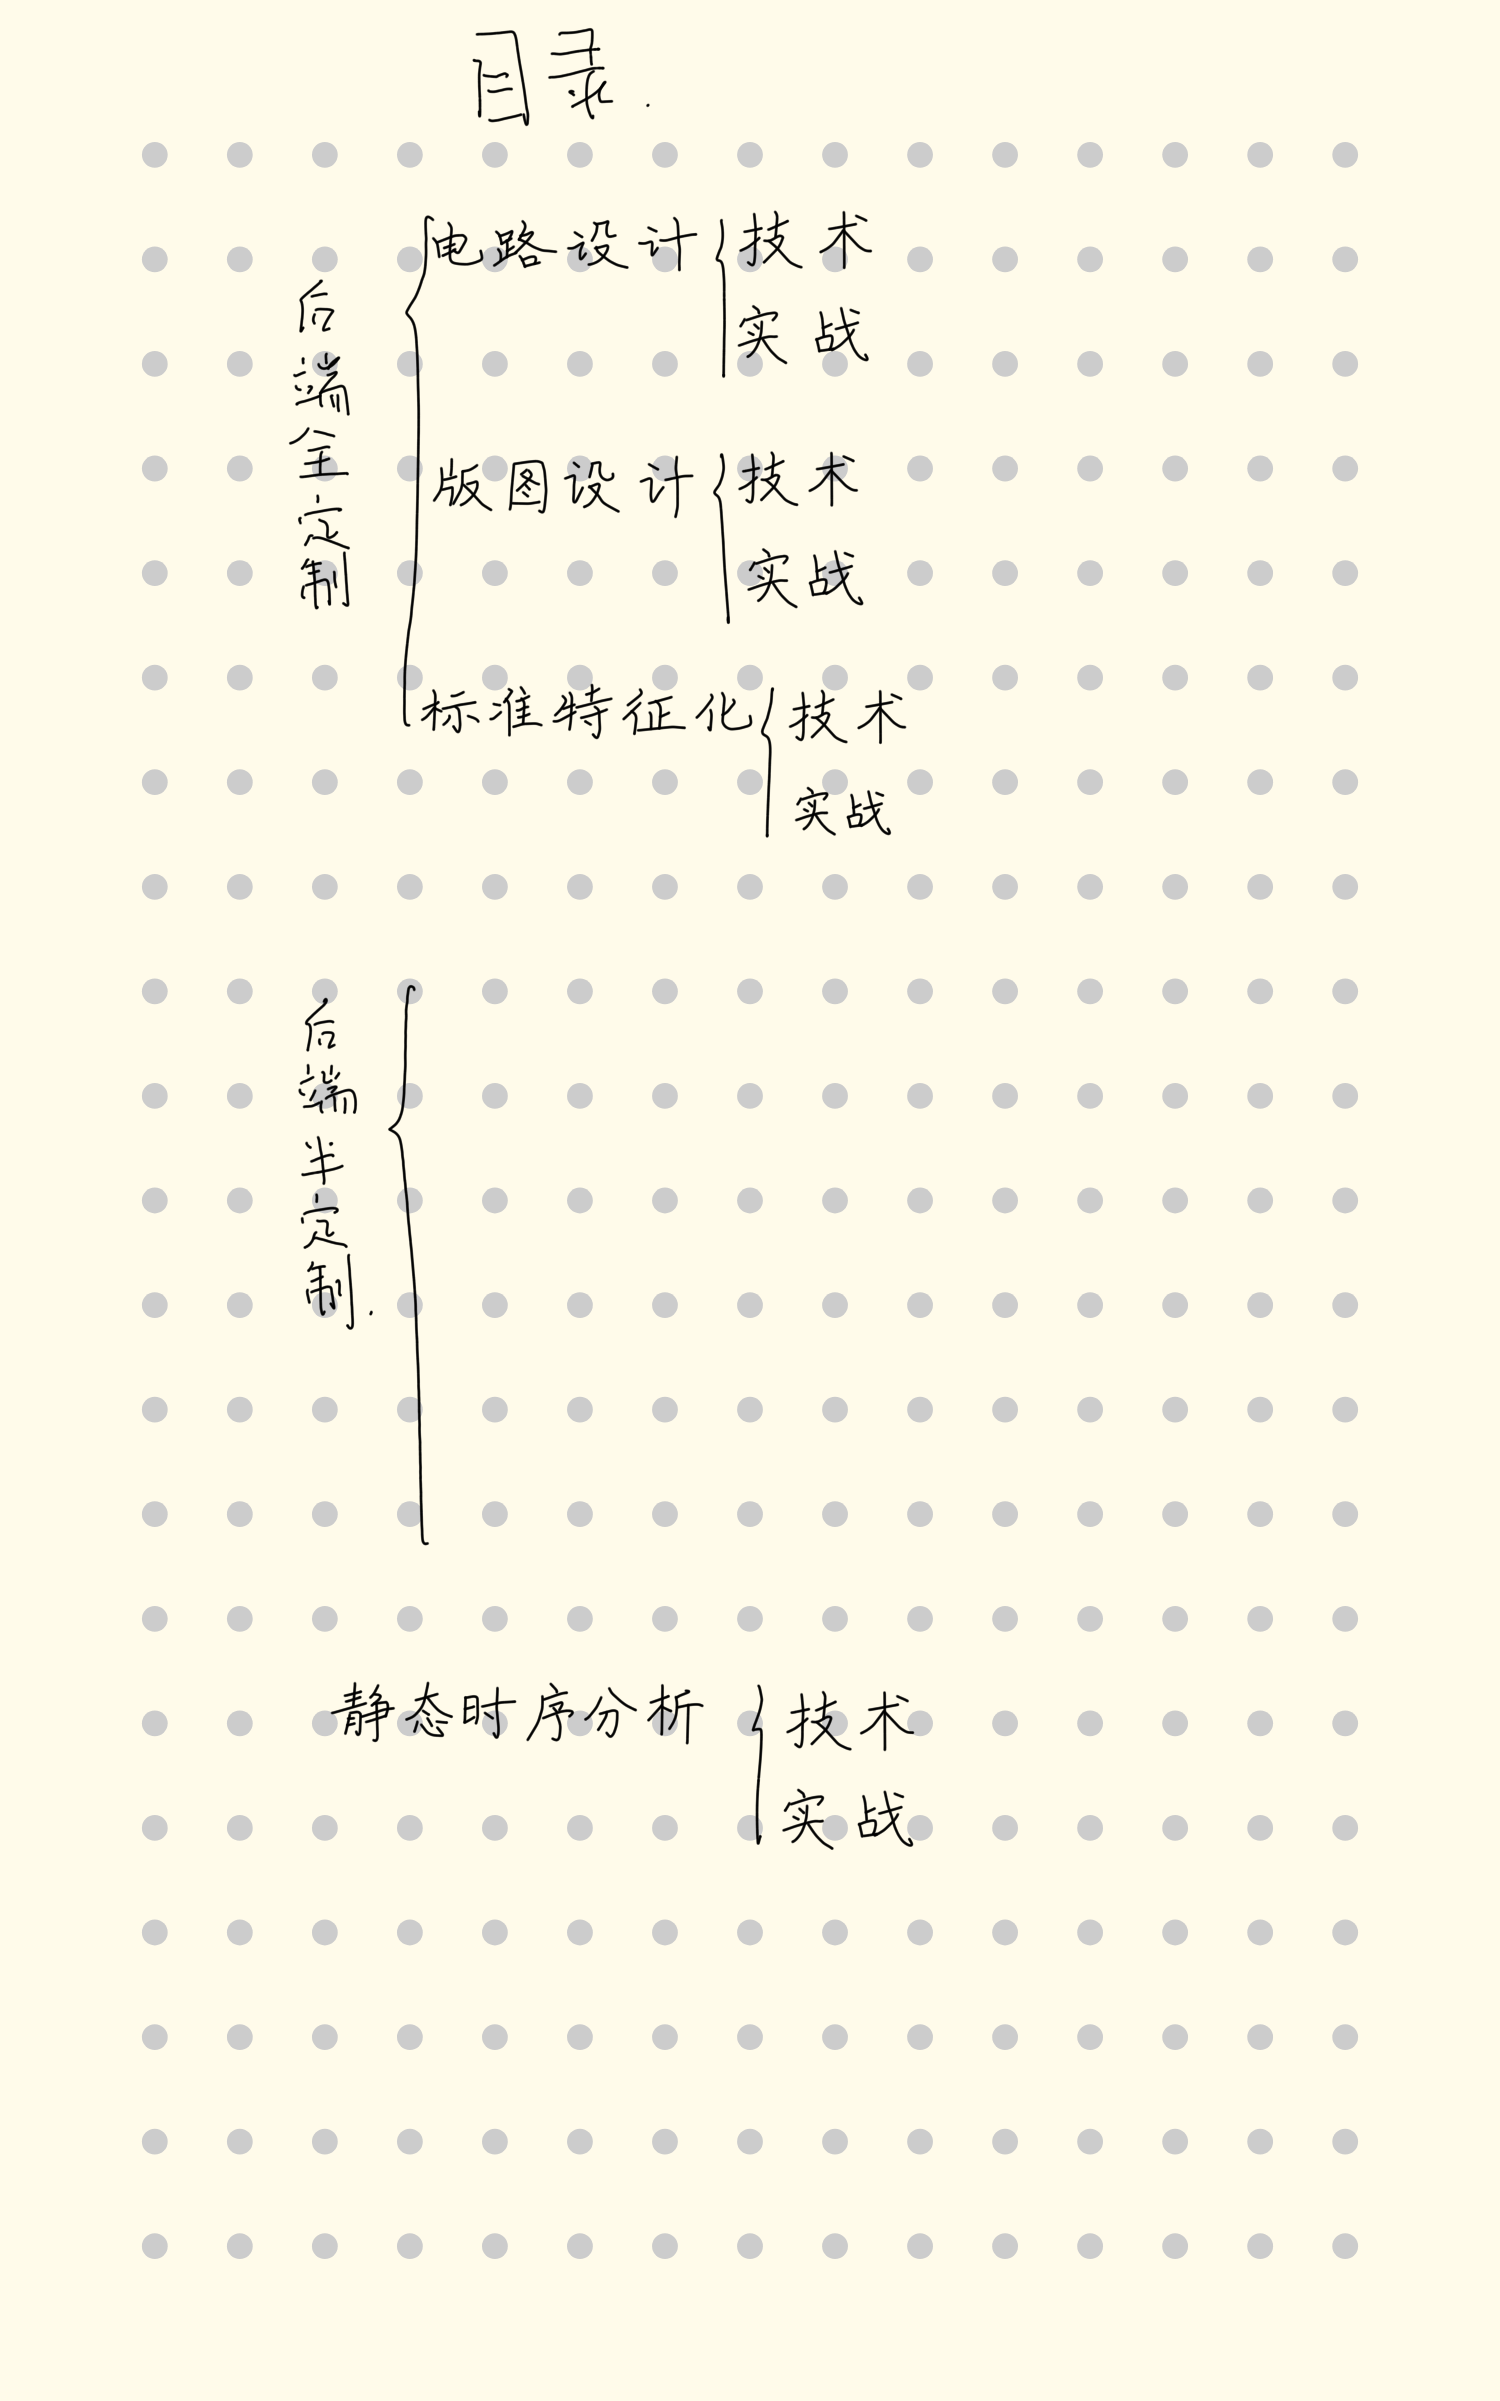 目录.
后端全定制
电路设计
技术
实战
版图设计
技术
实战
标准特征化
技术
实战
后端半定制.
静态时序分析
技术
实战